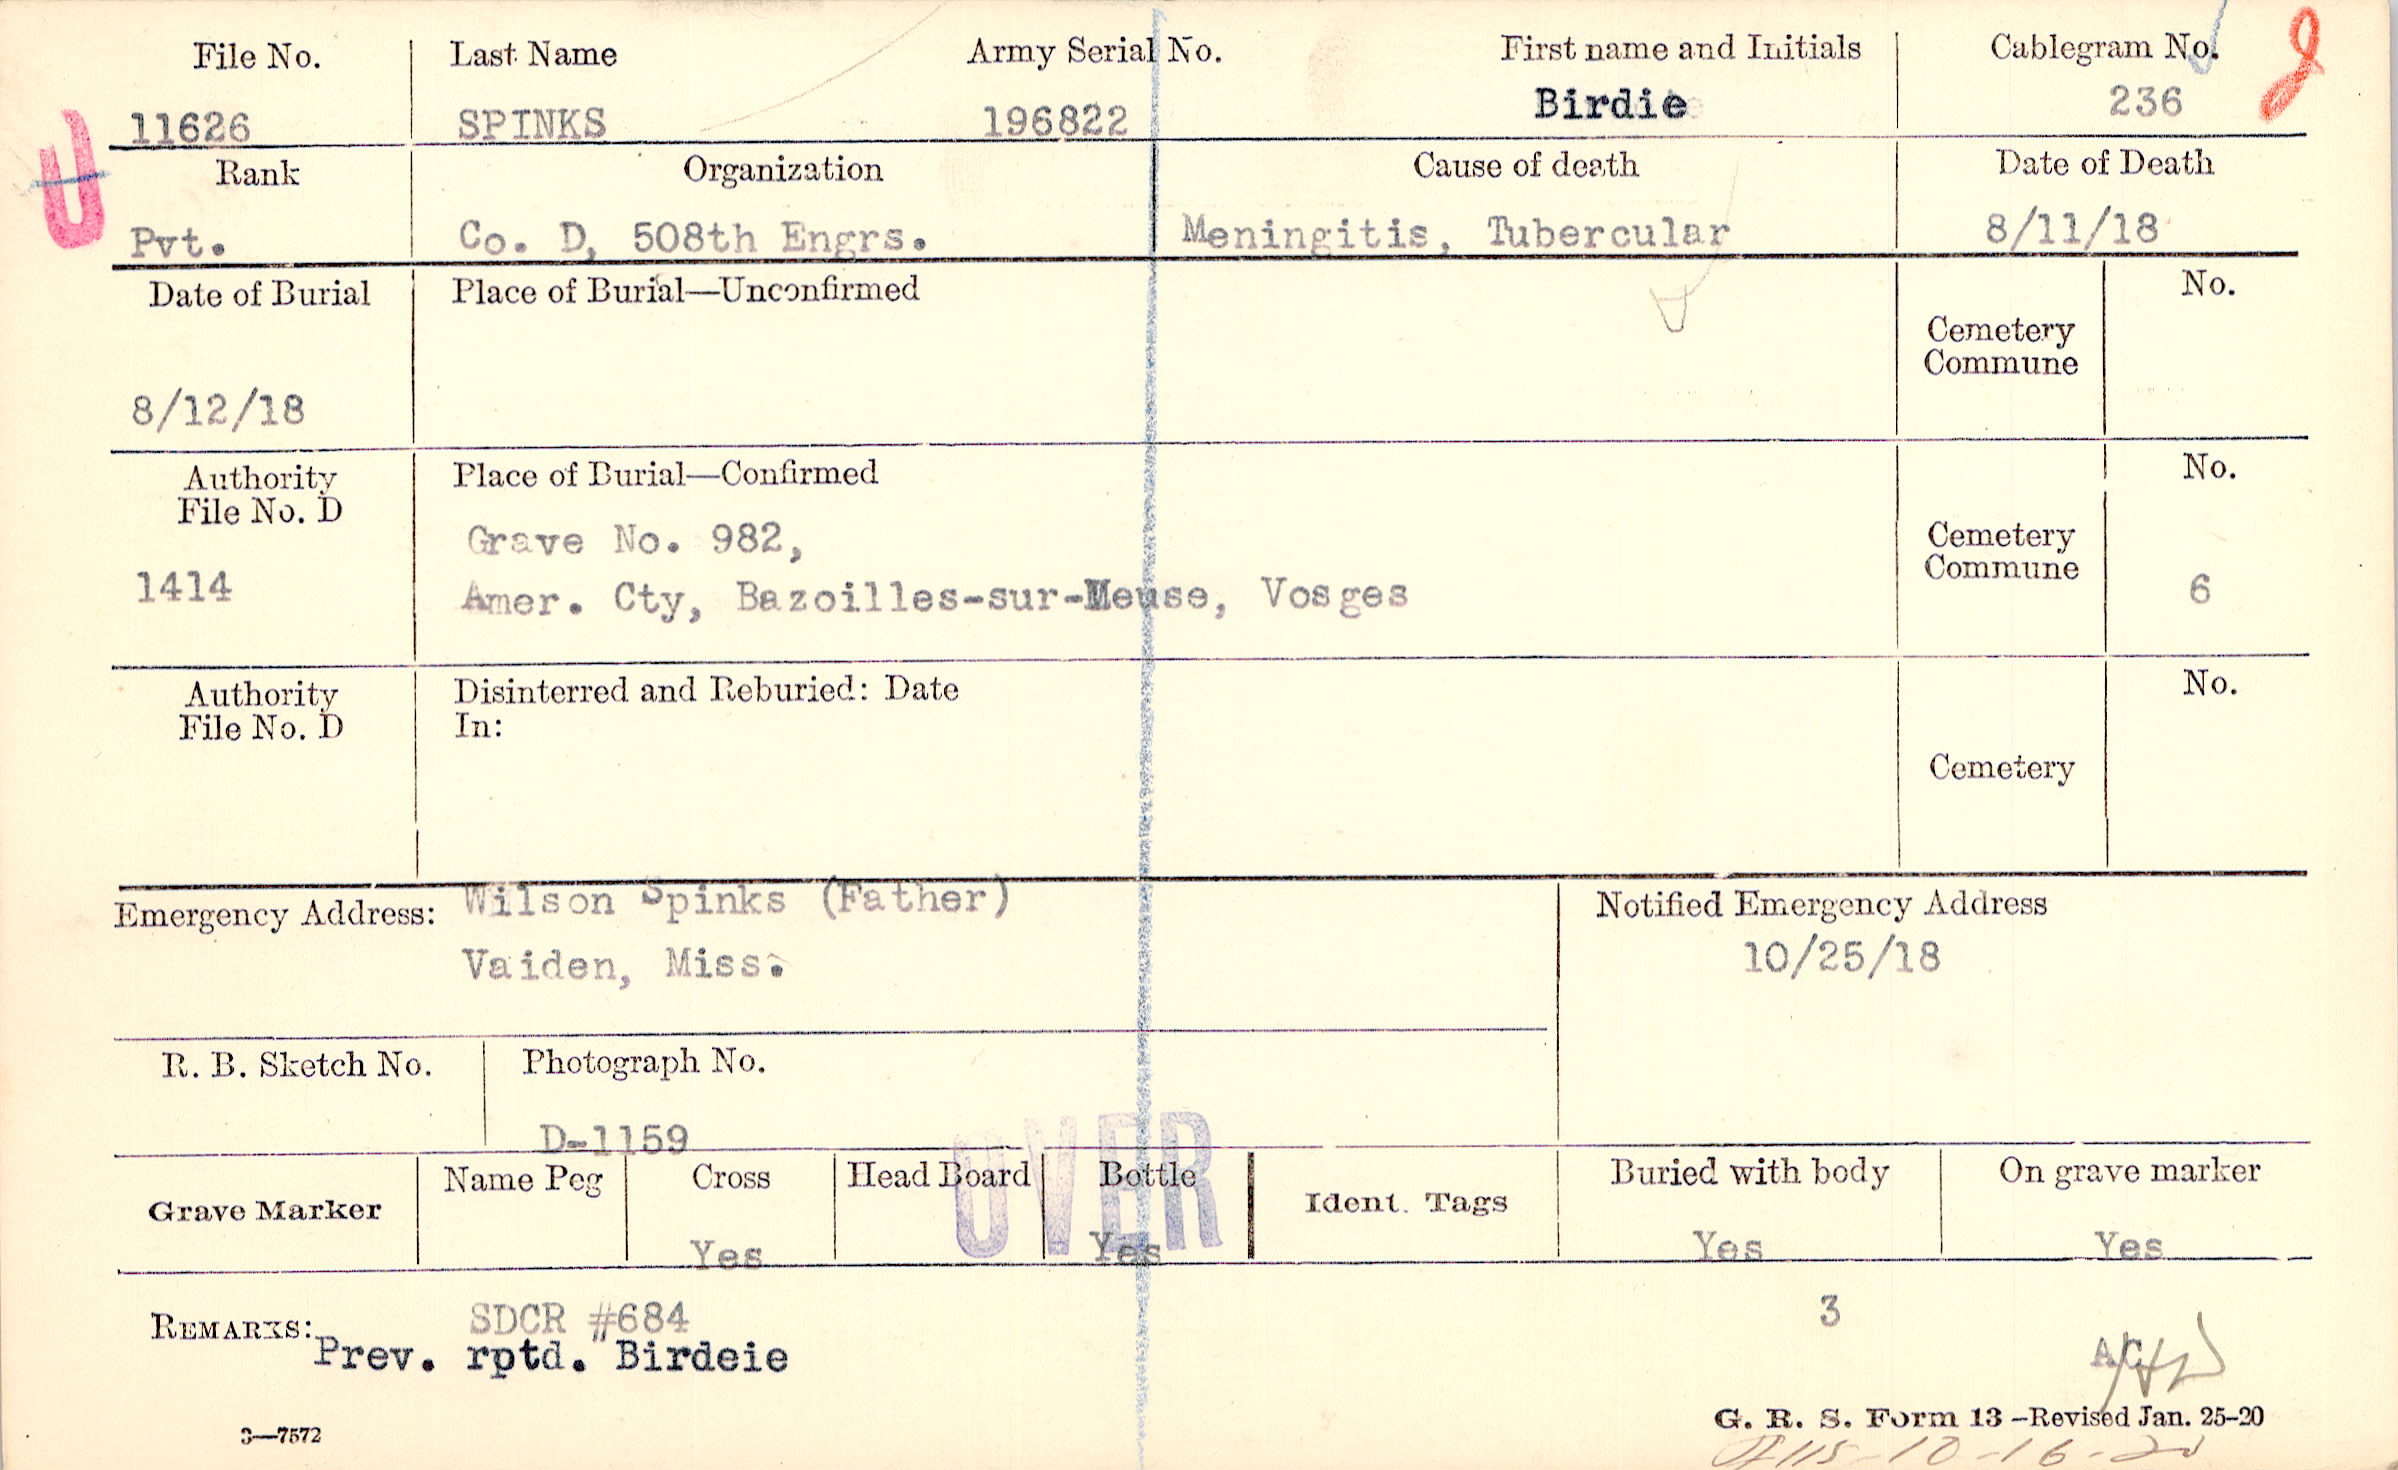 File No. Last Name Army Serial No. First name and Initials Cablegram No.
11626 SPINKS 196822 Birdie 236
Rank Organization Cause of death Date of Death
Pvt. Co. D, 508th Engrs. Meningitis, Tubercular 8/11/18
Date of Burial Place of Burial—Unconfirmed No.
Cemetery
Commune
8/12/18
Authority Place of Burial—Confirmed No.
File No. D
Grave No. 982, Cemetery
Commune
1414 Amer. Cty, Bazoilles-sur-Meuse, Vosges 6
Authority Disinterred and Reburied: Date No.
File No. D In:
Cemetery
Emergency Address: Wilson Spinks (Father) Notified Emergency Address
Vaiden, Miss. 10/25/18
R. B. Sketch No. Photograph No.
D-1159
OVER
Grave Marker Name Peg Cross Head Board Bottle Ident. Tags Buried with body On grave marker
Yes Yes Yes Yes
REMARKS: SDCR #684 3
Prev. rptd. Birdeie AC
G. R. S. Form 13—Revised Jan. 25-20
3—7572
10-16-20